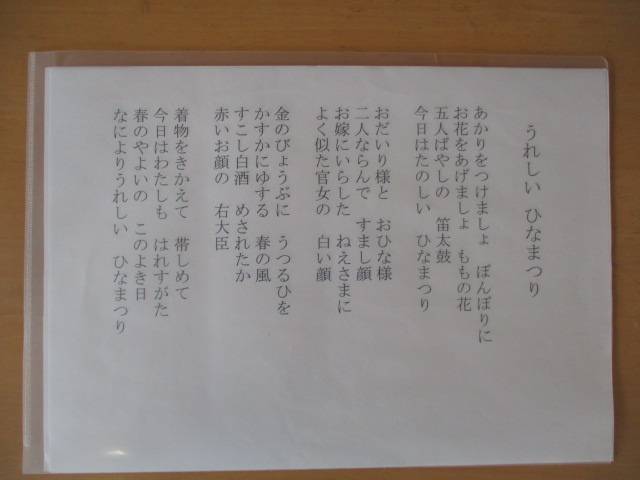 うれしい　ひなまつり
あかりをつけましょ　ぼんぼりに
お花をあげましょ　ももの花
五人ばやしの　笛太鼓
今日はたのしい　ひなまつり
おだいり様と　おひな様
二人ならんで　すまし顔
お嫁にいらした　ねえさまに
よく似た官女の　白い顔
金のびょうぶに　うつるひを
かすかにゆする　春の風
すこし白酒　めされたか
赤いお顔の　右大臣
着物をきかえて　帯しめて
今日はわたしも　はれすがた
春のやよいの　このよき日
なによりうれしい　ひなまつり